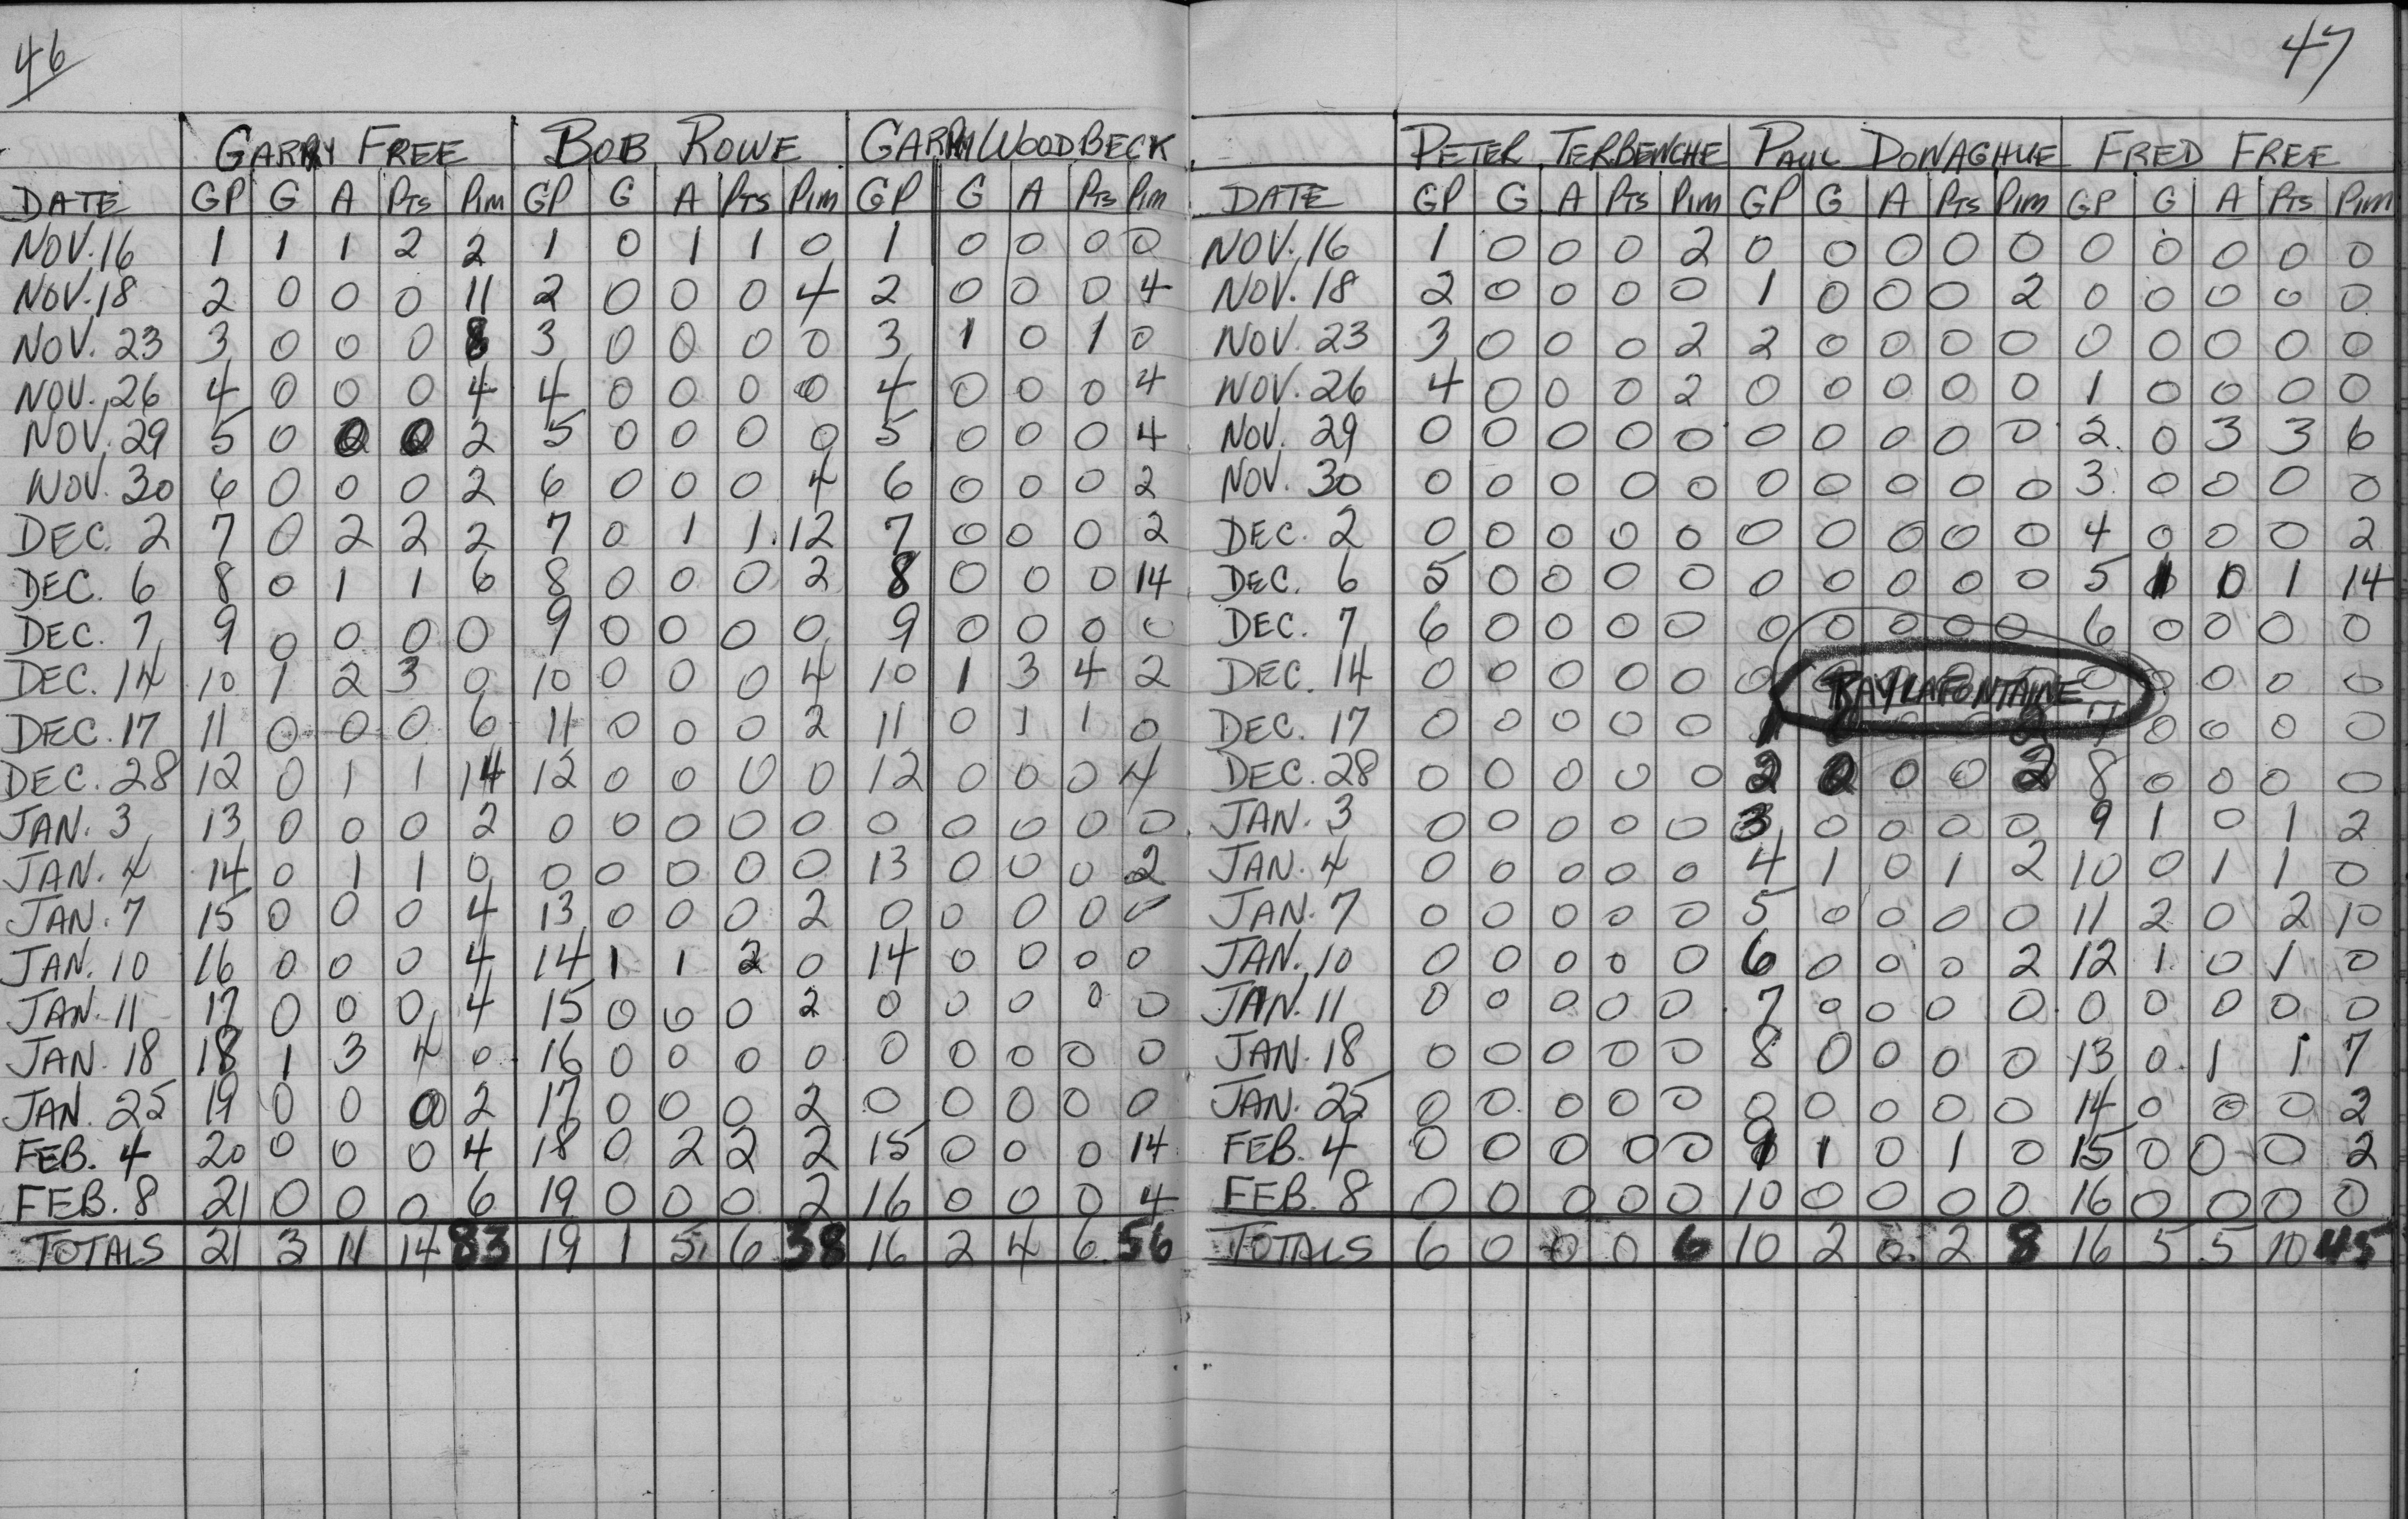 46
GARRY FREE BOB ROWE GARRY WOODBECK
DATE GP G A Pts Pim GP G A Pts Pim GP G A Pts Pim
NOV. 16 1 1 1 2 2 1 0 1 1 0 1 0 0 0 0
NOV. 18 2 0 0 0 11 2 0 0 0 4 2 0 0 0 4
NOV. 23 3 0 0 0 8 3 0 0 0 0 3 1 0 1 0
NOV. 26 4 0 0 0 4 4 0 0 0 0 4 0 0 0 4
NOV. 29 5 0 0 0 2 5 0 0 0 0 5 0 0 0 4
NOV. 30 6 0 0 0 2 6 0 0 0 4 6 0 0 0 2
DEC. 2 7 0 2 2 2 7 0 1 1 12 7 0 0 0 2
DEC. 6 8 0 1 1 6 8 0 0 0 2 8 0 0 0 14
DEC. 7 9 0 0 0 0 9 0 0 0 0 9 0 0 0 0
DEC. 14 10 1 2 3 0 10 0 0 0 4 10 1 3 4 2
DEC. 17 11 0 0 0 6 11 0 0 0 2 11 0 1 1 0
DEC. 28 12 0 1 1 14 12 0 0 0 0 12 0 0 0 4
JAN. 3 13 0 0 0 2 0 0 0 0 0 0 0 0 0 0
JAN. 4 14 0 1 1 0 0 0 0 0 0 13 0 0 0 2
JAN. 7 15 0 0 0 4 13 0 0 0 2 0 0 0 0 0
JAN. 10 16 0 0 0 4 14 1 1 2 0 14 0 0 0 0
JAN. 11 17 0 0 0 4 15 0 0 0 2 0 0 0 0 0
JAN. 18 18 1 3 4 0 16 0 0 0 0 0 0 0 0 0
JAN. 25 19 0 0 0 2 17 0 0 0 2 0 0 0 0 0
FEB. 4 20 0 0 0 4 18 0 2 2 2 15 0 0 0 14
FEB. 8 21 0 0 0 6 19 0 0 0 2 16 0 0 0 4
TOTALS 21 3 11 14 83 19 1 5 6 38 16 2 4 6 56
47
PETER TERBENCHE PAUL DONAGHUE FRED FREE
DATE GP G A Pts Pim GP G A Pts Pim GP G A Pts Pim
NOV. 16 1 0 0 0 2 0 0 0 0 0 0 0 0 0 0
NOV. 18 2 0 0 0 0 1 0 0 0 2 0 0 0 0 0
NOV. 23 3 0 0 0 2 2 0 0 0 0 0 0 0 0 0
NOV. 26 4 0 0 0 2 0 0 0 0 0 1 0 0 0 0
NOV. 29 0 0 0 0 0 0 0 0 0 0 2 0 3 3 6
NOV. 30 0 0 0 0 0 0 0 0 0 0 3 0 0 0 0
DEC. 2 0 0 0 0 0 0 0 0 0 0 4 0 0 0 2
DEC. 6 5 0 0 0 0 0 0 0 0 0 5 1 0 1 14
DEC. 7 6 0 0 0 0 0 0 0 0 0 6 0 0 0 0
DEC. 14 0 0 0 0 0 0 RAY LAFONTAINE 0 0 0 0
DEC. 17 0 0 0 0 0 1 7 0 0 0 0
DEC. 28 0 0 0 0 0 2 0 0 0 2 8 0 0 0 0
JAN. 3 0 0 0 0 0 3 0 0 0 0 9 1 0 1 2
JAN. 4 0 0 0 0 0 4 1 0 1 2 10 0 1 1 0
JAN. 7 0 0 0 0 0 5 0 0 0 0 11 2 0 2 10
JAN. 10 0 0 0 0 0 6 0 0 0 2 12 1 0 1 0
JAN. 11 0 0 0 0 0 7 0 0 0 0 0 0 0 0 0
JAN. 18 0 0 0 0 0 8 0 0 0 0 13 0 1 1 7
JAN. 25 0 0 0 0 0 0 0 0 0 0 14 0 0 0 2
FEB. 4 0 0 0 0 0 9 1 0 1 0 15 0 0 0 2
FEB. 8 0 0 0 0 0 10 0 0 0 0 16 0 0 0 0
TOTALS 6 0 0 0 6 10 2 0 2 8 16 5 5 10 45